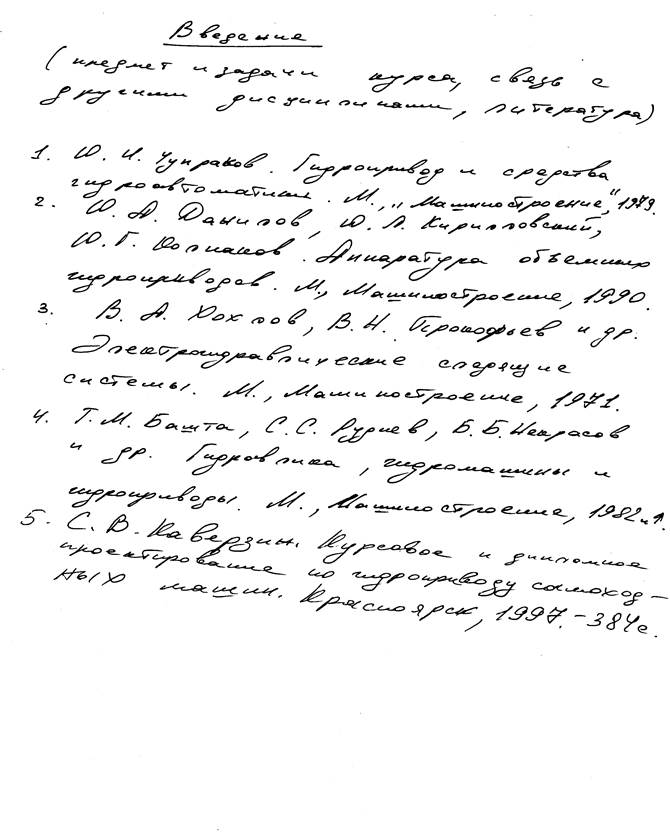 Введение
(предмет и задачи курса, связь с
другими дисциплинами, литература)
1. Ю. И. Чупраков. Гидропривод и средства
гидроавтоматики. М., "Машиностроение", 1979.
2. Ю. А. Данилов, Ю. Л. Кирилловский,
Ю. Г. Колпаков. Аппаратура объемных
гидроприводов. М., Машиностроение, 1990.
3. В. А. Хохлов, В. Н. Прокофьев и др.
Электрогидравлические следящие
системы. М., Машиностроение, 1971.
4. Т. М. Башта, С. С. Руднев, Б. Б. Некрасов
и др. Гидравлика, гидромашины и
гидроприводы. М., Машиностроение, 1982
5. С. В. Каверзин. Курсовое и дипломное
проектирование по гидроприводу самоход-
ных машин. Красноярск, 1997. - 384 с.